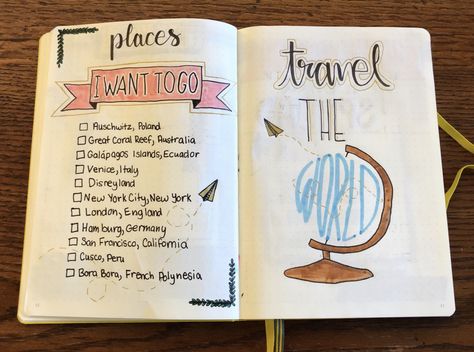 places
I WANT TO GO
Auschwitz, Poland
Great Coral Reef, Australia
Galápagos Islands, Ecuador
Venice, Italy
Disneyland
New York City, New York
London, England
Hamburg, Germany
San Francisco, California
Cusco, Peru
Bora Bora, French Polynesia
travel
THE
WORLD